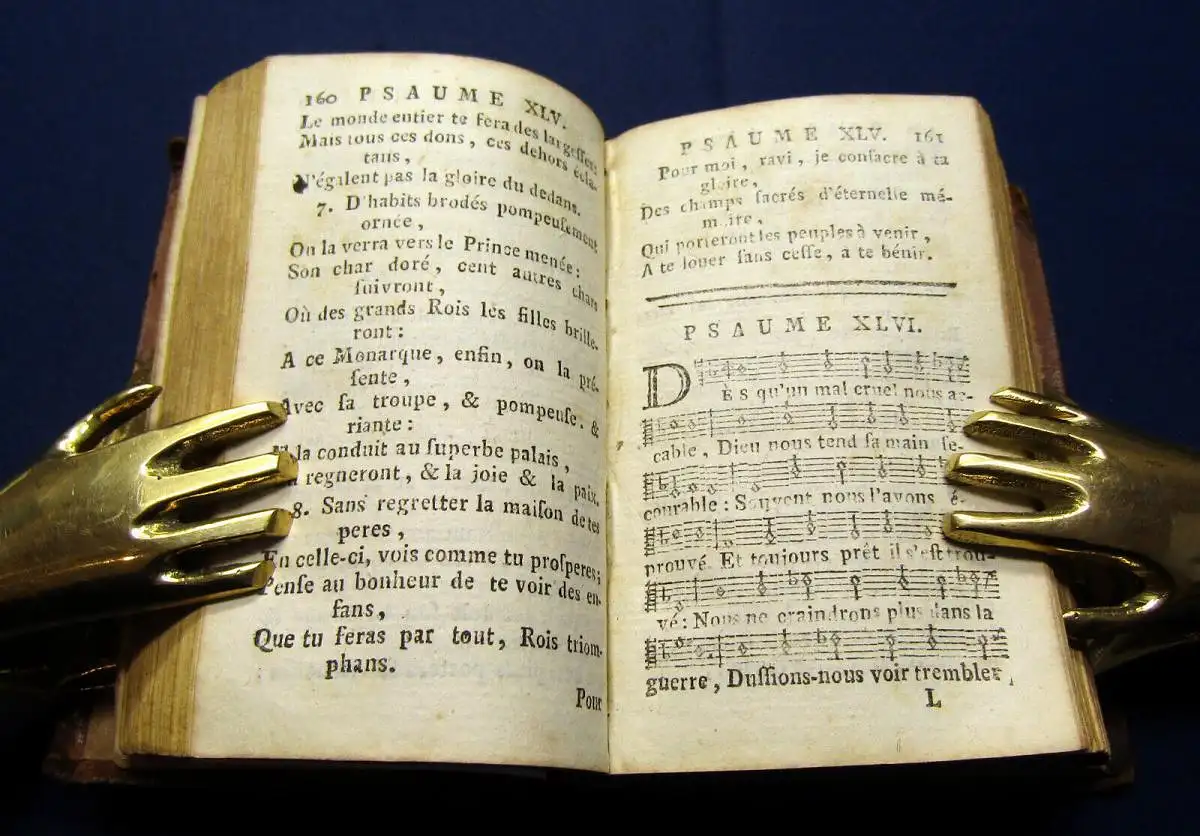 160 PSAUME XLV.
Le monde entier te fera des largeſſes:
Mais tous ces dons, ces dehors écla-
tans,
N'égalent pas la gloire du dedans.
7. D'habits brodés pompeuſement
ornée,
On la verra vers le Prince menée:
Son char doré, cent autres chars
ſuivront,
Où des grands Rois les filles brille-
ront:
A ce Monarque, enfin, on la pré-
ſente,
Avec ſa troupe, & pompeuſe, &
riante:
la conduit au ſuperbe palais,
regneront, & la joie & la paix.
8. Sans regretter la maiſon de tes
peres,
En celle-ci, vois comme tu proſperes;
Penſe au bonheur de te voir des en-
fans,
Que tu feras par tout, Rois triom-
phans.
Pour
PSAUME XLV. 161
Pour moi, ravi, je conſacre à ta
gloire,
Des champs ſacrés d'éternelle mé-
moire,
Qui porteront les peuples à venir,
A te louer ſans ceſſe, à te bénir.
PSAUME XLVI.
DÈS qu'un mal cruel nous ac-
cable, Dieu nous tend ſa main ſe-
courable: Souvent nous l'avons é-
prouvé. Et toujours prêt il s'eſt trou-
vé: Nous ne craindrons plus dans la
guerre, Duſſions-nous voir trembler
L